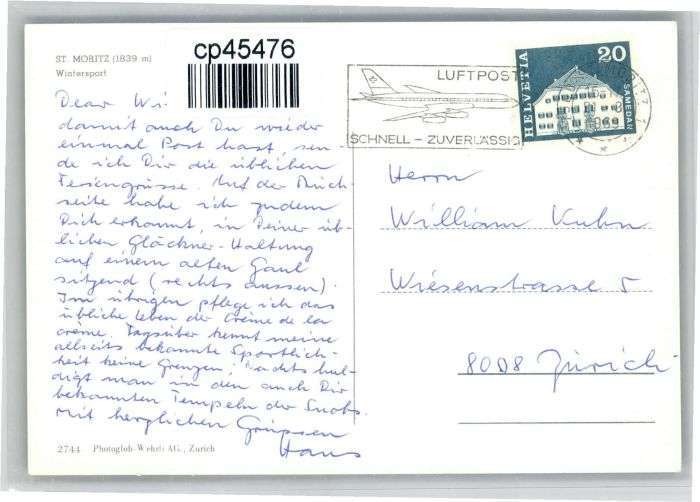 ST. MORITZ (1839 m)
Wintersport
cp45476
LUFTPOST
SCHNELL – ZUVERLÄSSIG
HELVETIA
20
SAMEDAN
Dear Wi
damit auch Du wieder
einmal Post hast, sen-
de ich Dir die üblichen
Feriengrüsse. Auf der Rück-
seite habe ich zudem
Dich erkannt, in Deiner üb-
lichen Glöckner-Haltung
auf einem alten Gaul
sitzend (rechts aussen).
Im übrigen pflege ich das
übliche Leben der Crème de la
crème. Tagsüber kennt meine
allseits bekannte Sportlich-
keit keine Grenzen, nachts hul-
digt man in den auch Dir
bekannten Tempeln der Snobs.
Mit herzlichen Grüssen
Hans
Herrn
William Kuhn
Wiesenstrasse 5
8008 Zürich
2744 Photoglob-Wehrli AG., Zurich